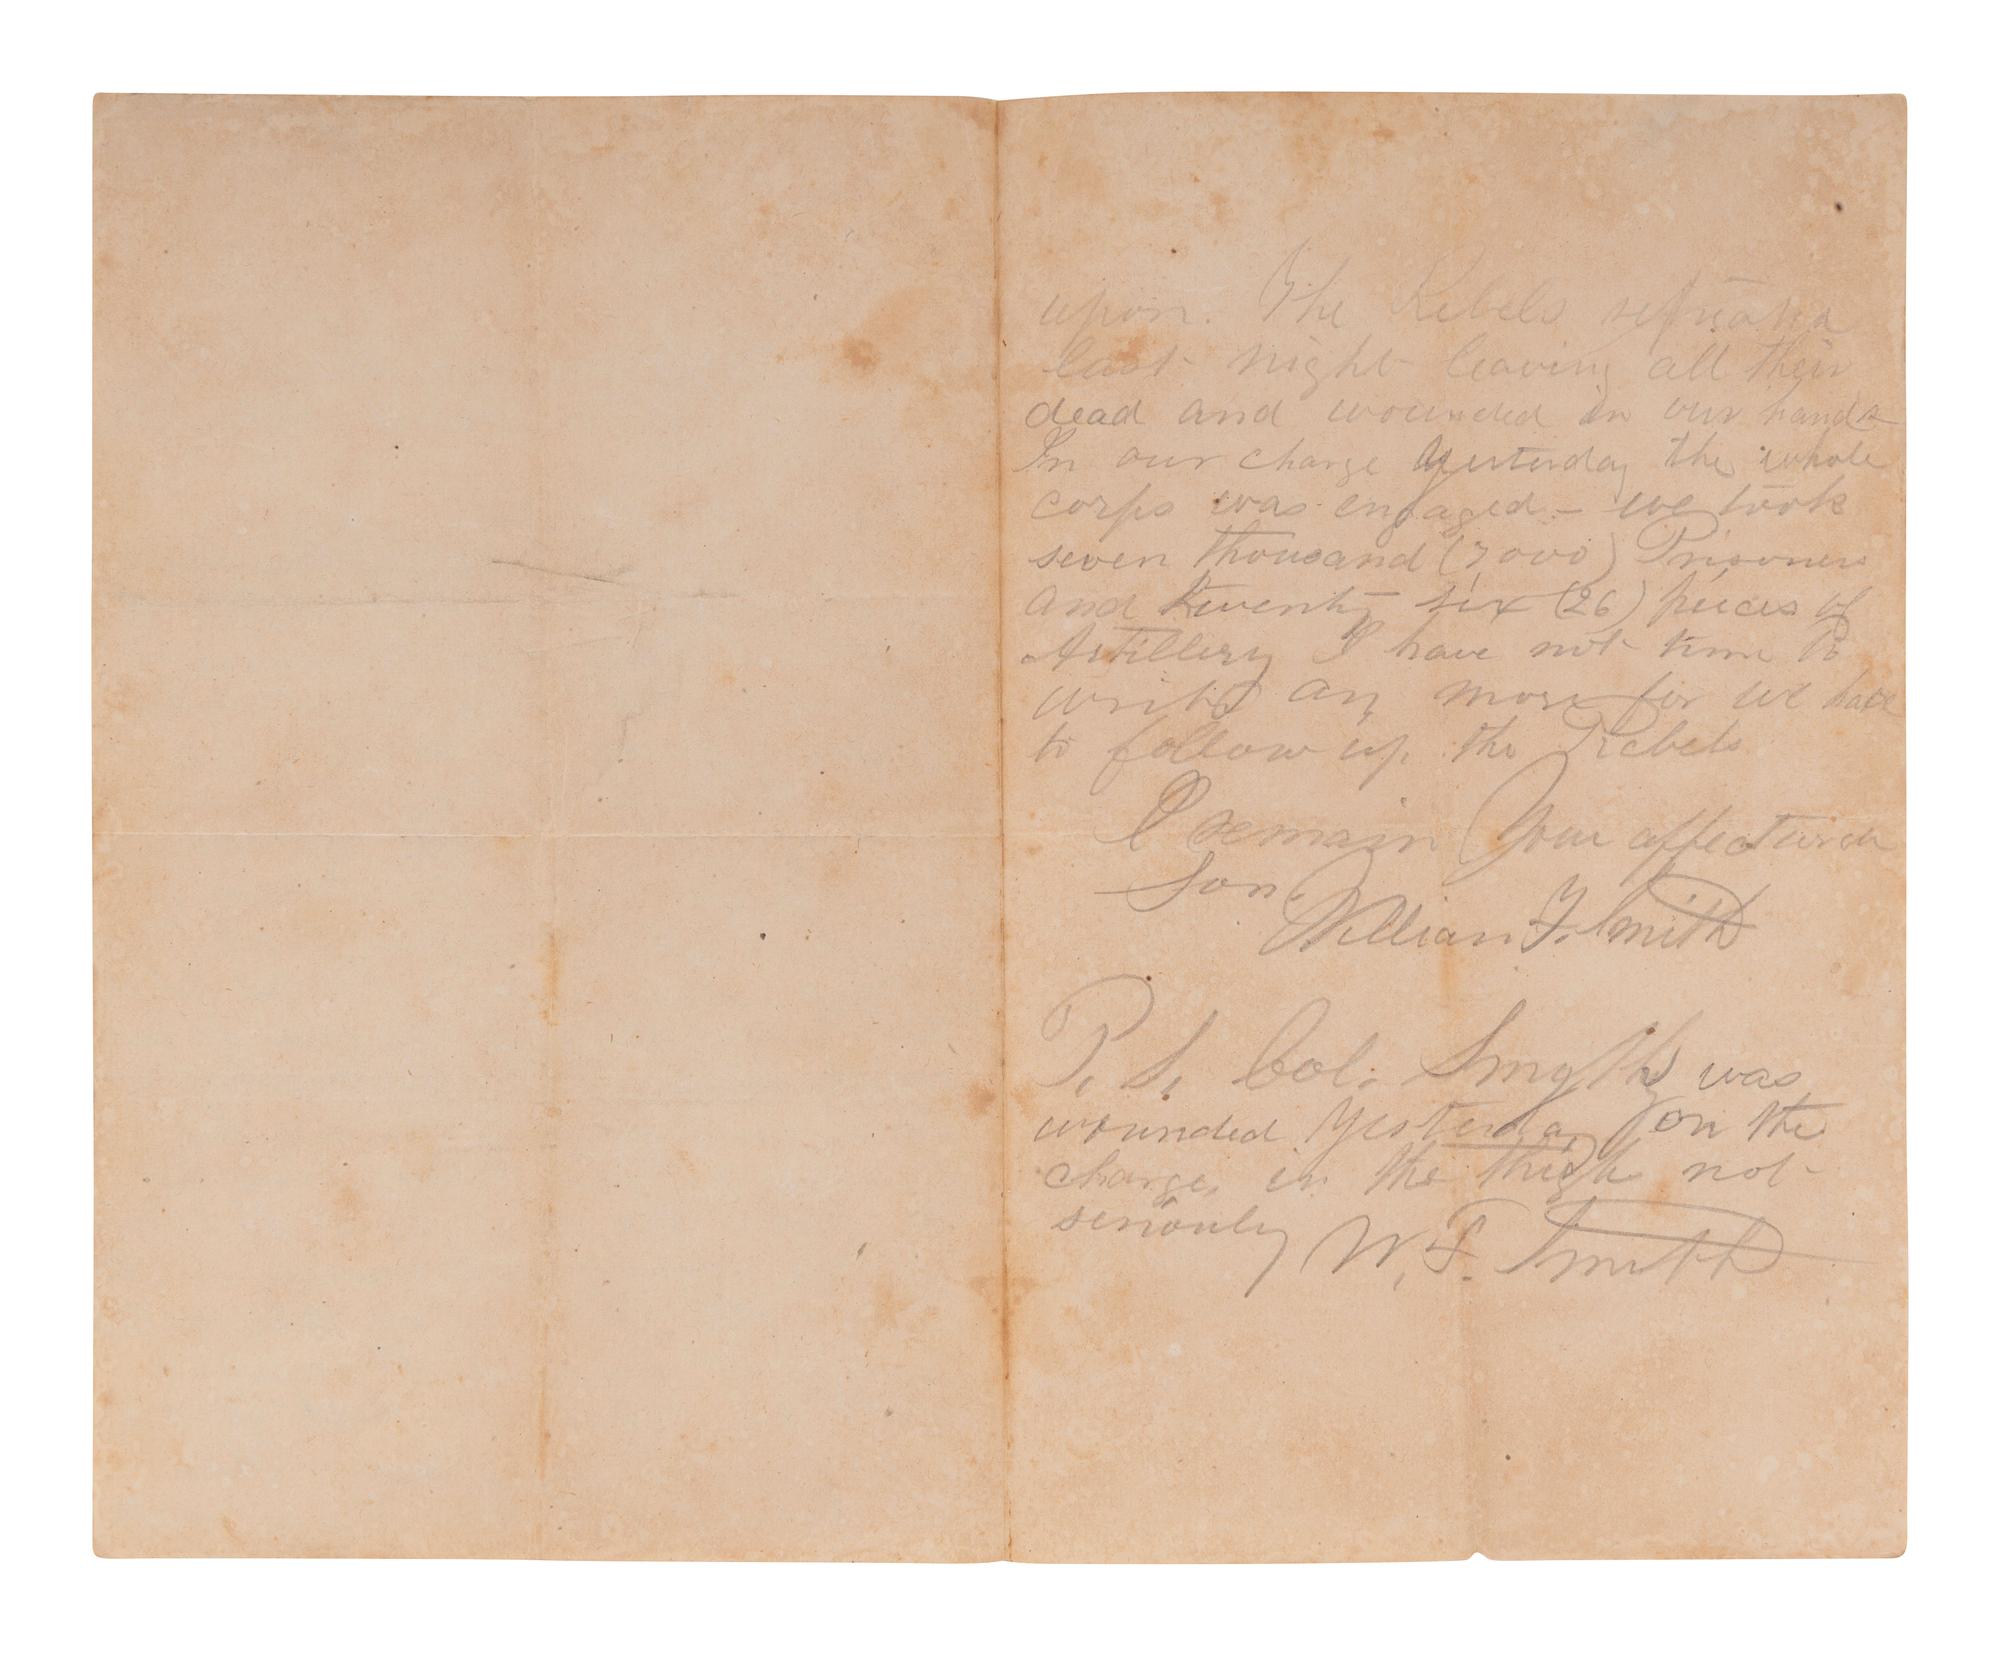 upon. The Rebels retreated
last night leaving all their
dead and wounded in our hands
In our charge Yesterday the whole
corps was engaged – we took
seven thousand (7000) Prisoners
and twenty six (26) pieces of
Artillery I have not time to
write any more for we have
to follow up the Rebels
I remain Your affectionate
Son.
William F. Smith
P. S. Col. Smyth was
wounded Yesterday on the
charge, in the thigh not
seriously W. F. Smith